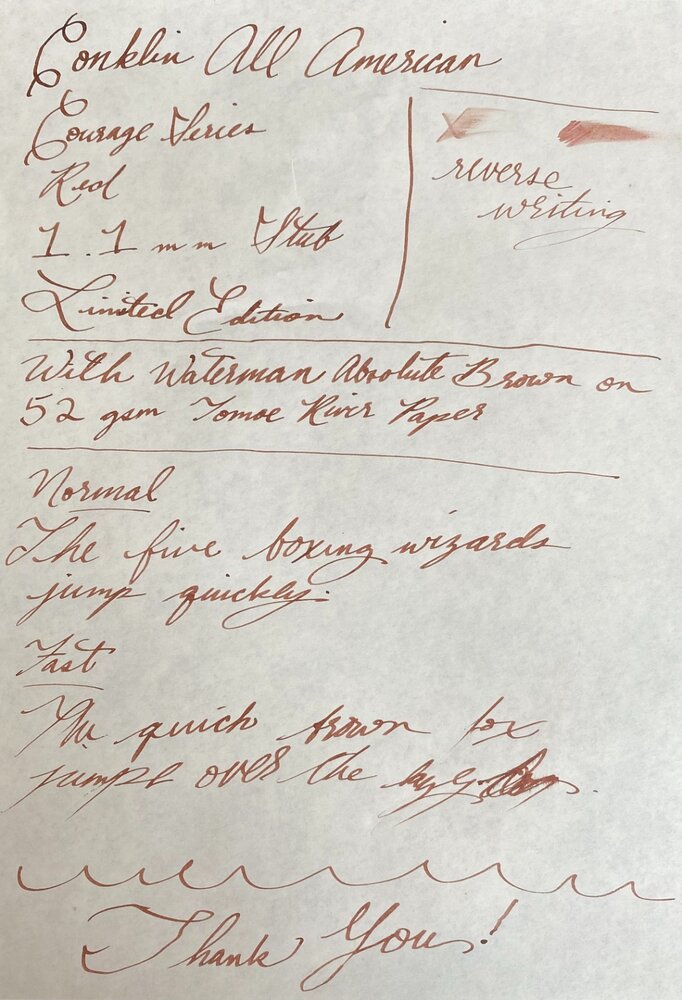 Conklin All American
Courage Series
Red
1.1 mm Stub
Limited Edition
reverse
writing
With Waterman Absolute Brown on
52 gsm Tomoe River Paper
Normal
The five boxing wizards
jump quickly.
Fast
The quick brown fox
jumps over the lazy
Thank You!